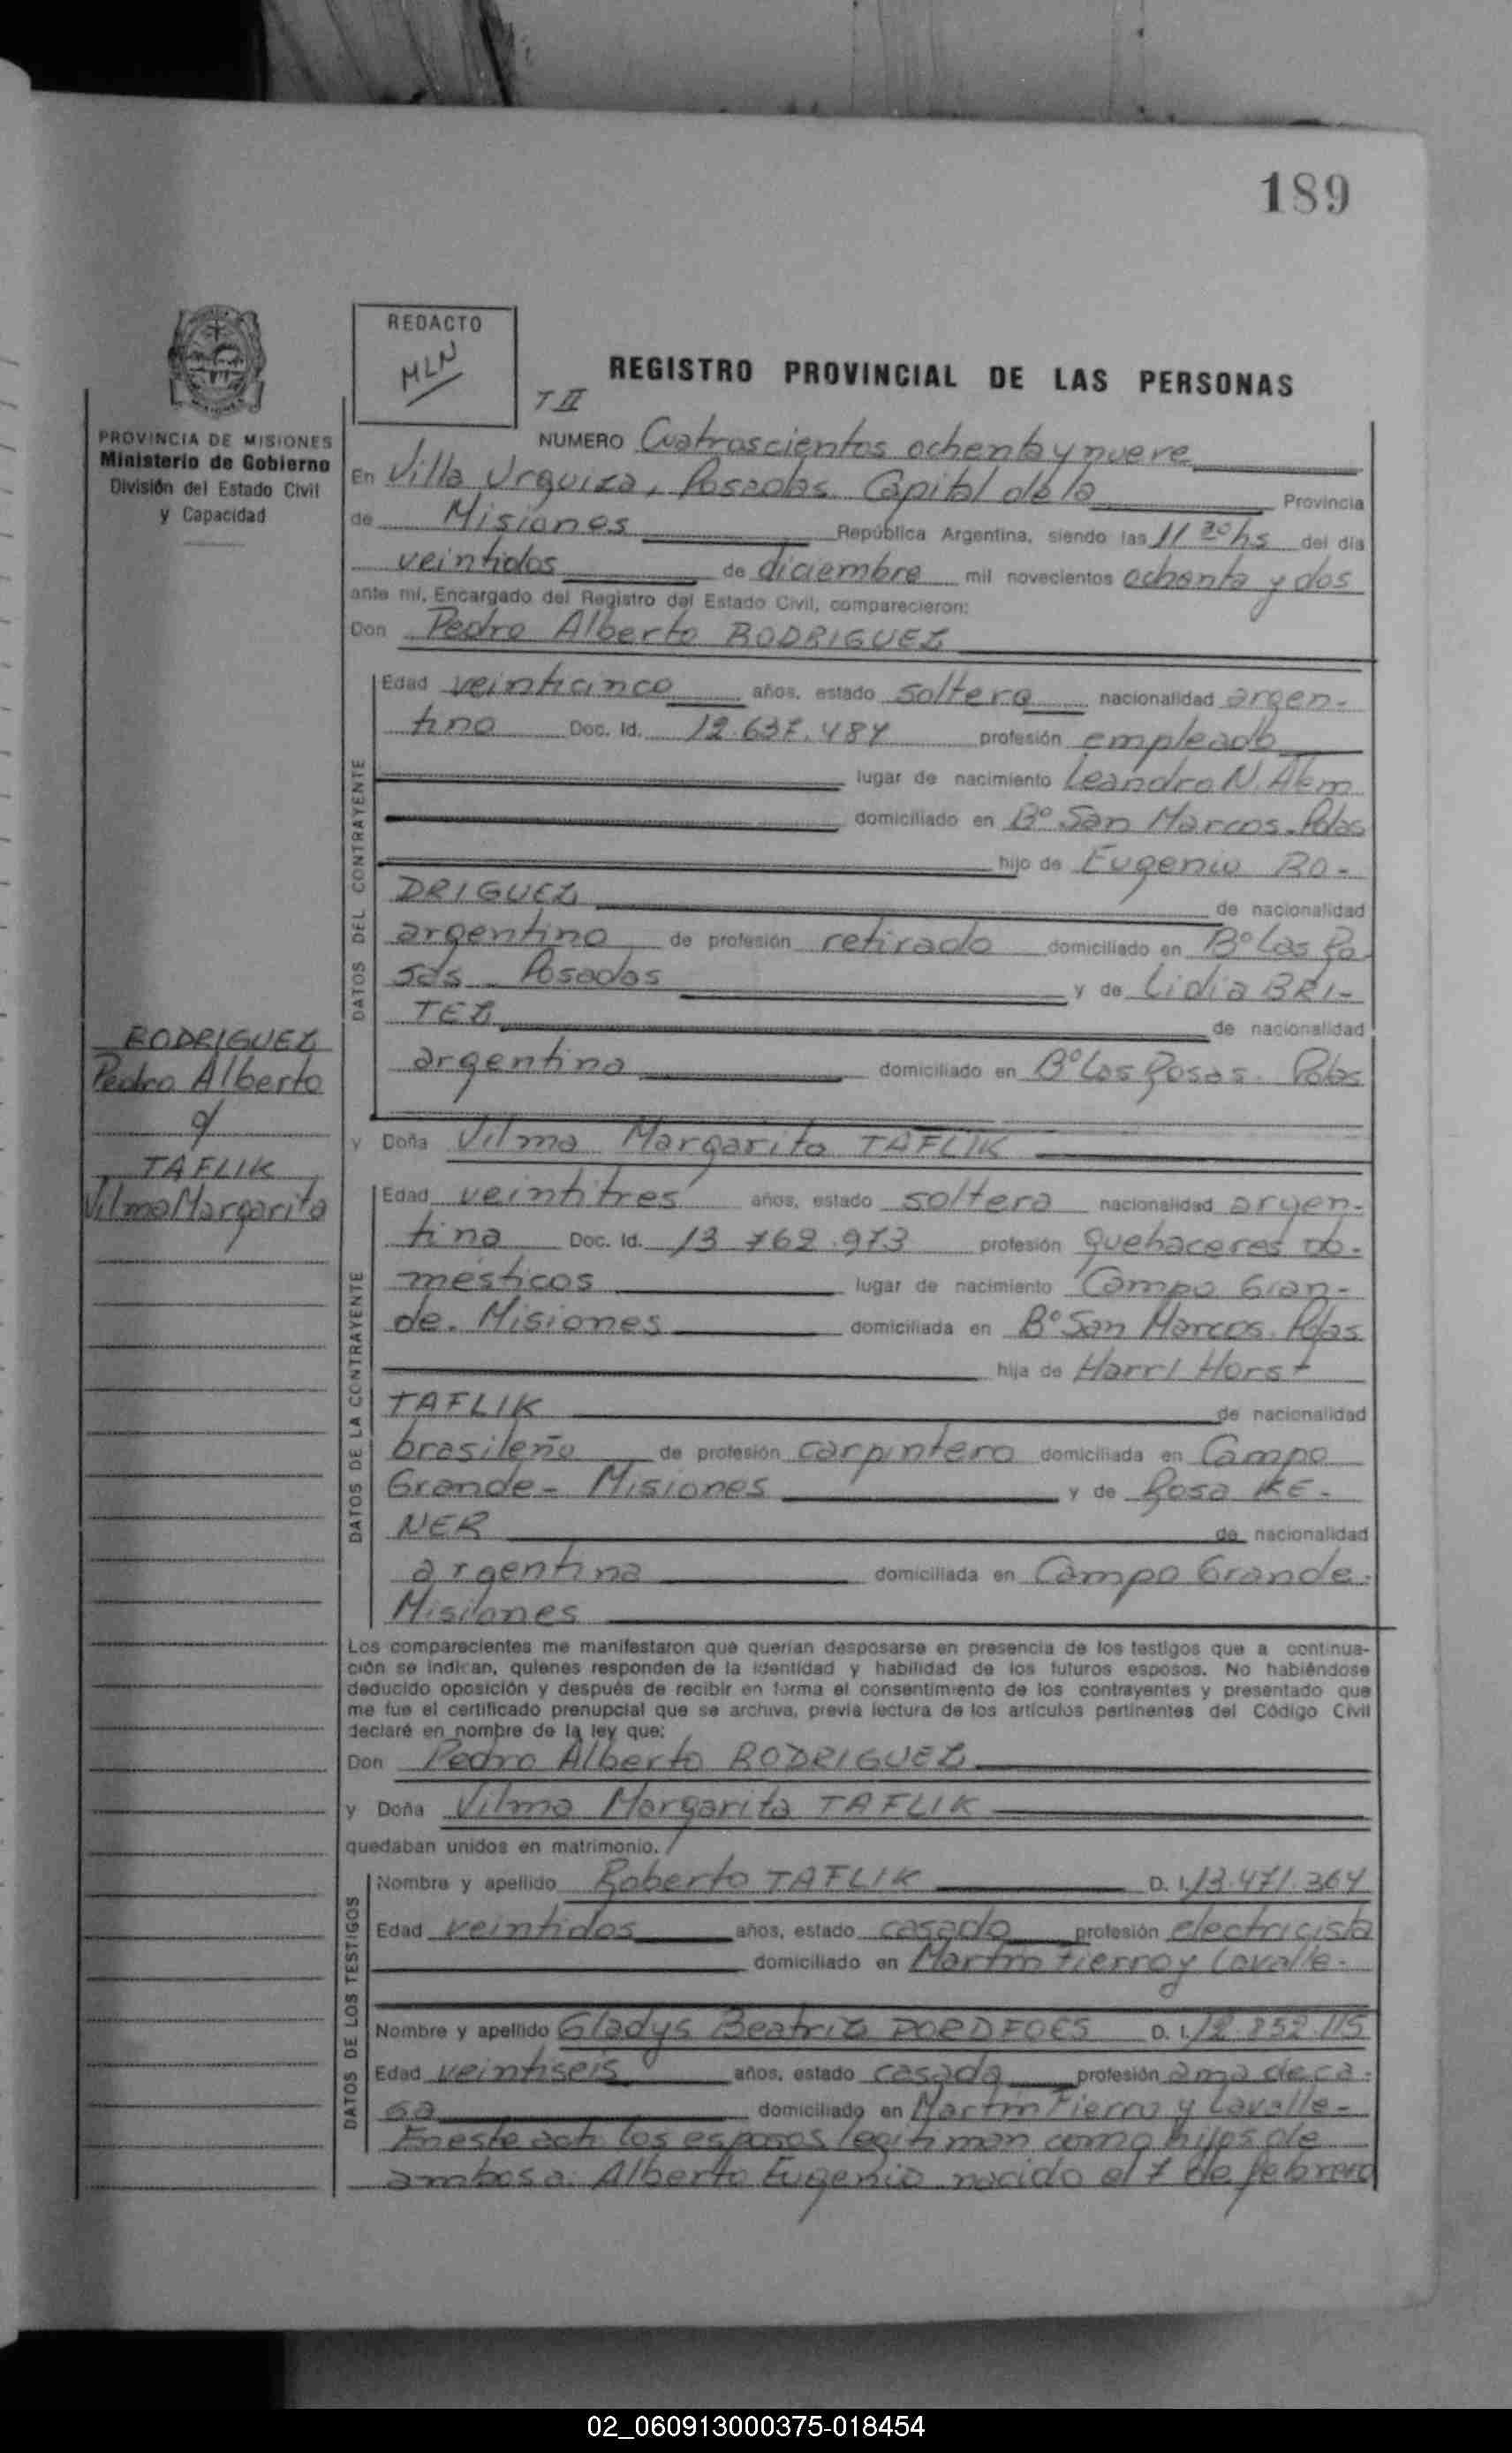 189
REDACTO
MLN
REGISTRO PROVINCIAL DE LAS PERSONAS
T II
PROVINCIA DE MISIONES
Ministerio de Gobierno
División del Estado Civil
y Capacidad
NUMERO Cuatroscientos ochenta y nueve
En Villa Urquiza, Posadas Capital de la Provincia
de Misiones República Argentina, siendo las 11 30 hs del día
veintidos de diciembre mil novecientos ochenta y dos
ante mí, Encargado del Registro del Estado Civil, comparecieron:
Don Pedro Alberto RODRIGUEZ
DATOS DEL CONTRAYENTE
Edad veinticinco años, estado soltero nacionalidad argen-
tino Doc. Id. 12.637.487 profesión empleado
lugar de nacimiento Leandro N. Alem
domiciliado en B° San Marcos. Pdas
hijo de Eugenio RO-
DRIGUEZ de nacionalidad
argentino de profesión retirado domiciliado en B° Las Ro
sas - Posadas y de Lidia BRI-
TEZ de nacionalidad
argentina domiciliado en B° Las Rosas. Pdas
RODRIGUEZ
Pedro Alberto
c/
TAFLIK
Vilma Margarita
y Doña Vilma Margarita TAFLIK
DATOS DE LA CONTRAYENTE
Edad veintitres años, estado soltera nacionalidad argen-
tina Doc. Id. 13 762.973 profesión quehaceres do-
mésticos lugar de nacimiento Campo Gran-
de. Misiones domiciliada en B° San Marcos. Pdas
hija de Harri Horst
TAFLIK de nacionalidad
brasileño de profesión carpintero domiciliada en Campo
Grande - Misiones y de Rosa KE-
NER de nacionalidad
argentina domiciliada en Campo Grande.
Misiones
Los comparecientes me manifestaron que querían desposarse en presencia de los testigos que a continua-
ción se indican, quienes responden de la identidad y habilidad de los futuros esposos. No habiéndose
deducido oposición y después de recibir en forma el consentimiento de los contrayentes y presentado que
me fue el certificado prenupcial que se archiva, previa lectura de los artículos pertinentes del Código Civil
declaré en nombre de la ley que:
Don Pedro Alberto RODRIGUEZ
y Doña Vilma Margarita TAFLIK
quedaban unidos en matrimonio.
DATOS DE LOS TESTIGOS
Nombre y apellido Roberto TAFLIK D. I. 13.471.364
Edad veintidos años, estado casado profesión electricista
domiciliado en Martín Fierro y Lavalle-
Nombre y apellido Gladys Beatriz D. I. 12.852.115
Edad veintiseis años, estado casada profesión ama de ca-
sa domiciliado en Martín Fierro y Lavalle-
En este acto los esposos legitiman como hijos de
ambos a: Alberto Eugenio nacido el 7 de febrero
02_060913000375-018454